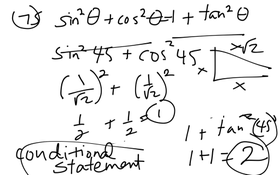 75) sin²θ + cos²θ = 1 + tan²θ
sin²45 + cos²45
x√2
x
x
(1/√2)² + (1/√2)²
1/2 + 1/2 = 1
1 + tan²(45)
1 + 1 = 2
conditional
statement